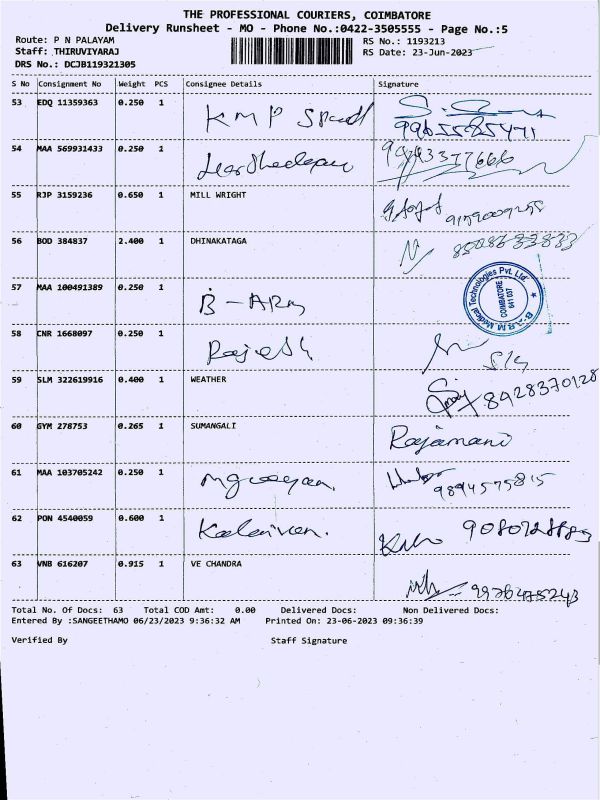 THE PROFESSIONAL COURIERS, COIMBATORE
Delivery Runsheet - MO - Phone No.:0422-3505555 - Page No.:5
Route: P N PALAYAM RS No.: 1193213
Staff: THIRUVIYARAJ RS Date: 23-Jun-2023
DRS No.: DCJB119321305
S No Consignment No Weight PCS Consignee Details Signature
53 EDQ 11359363 0.250 1 KMP
9965585471
54 MAA 569931433 0.250 1
55 RJP 3159236 0.650 1 MILL WRIGHT
56 BOD 384837 2.400 1 DHINAKATAGA
57 MAA 100491389 0.250 1 B-ARM
B-ARM Medical Technologies Pvt. Ltd.
COIMBATORE
641 037
58 CNR 1668097 0.250 1 Rajesh
59 SLM 322619916 0.400 1 WEATHER
8928370128
60 GYM 278753 0.265 1 SUMANGALI Rajamani
61 MAA 103705242 0.250 1
9894575815
62 PON 4540059 0.600 1 Kalaivan.
63 VNB 616207 0.915 1 VE CHANDRA
Total No. Of Docs: 63 Total COD Amt: 0.00 Delivered Docs: Non Delivered Docs:
Entered By :SANGEETHAMO 06/23/2023 9:36:32 AM Printed On: 23-06-2023 09:36:39
Verified By Staff Signature